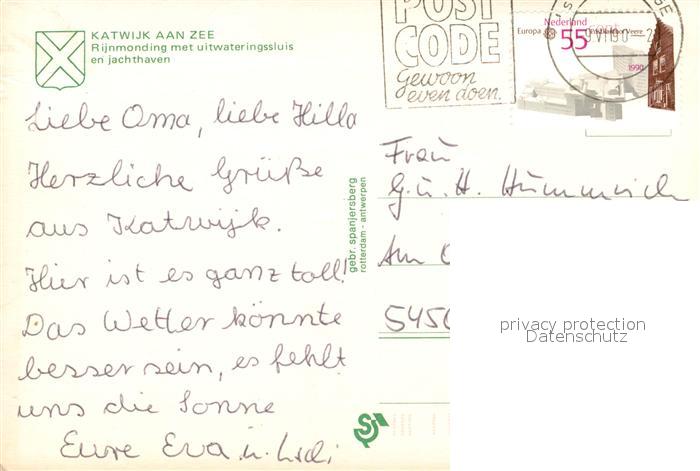 KATWIJK AAN ZEE
Rijnmonding met uitwateringssluis
en jachthaven
Liebe Oma, liebe Hilla
Herzliche Grüße
aus Katwijk.
Hier ist es ganz toll!
Das Wetter könnte
besser sein, es fehlt
uns die Sonne
Eure Eva u.
gebr. spanjersberg
rotterdam - antwerpen
POST
CODE
Gewoon
even doen.
Nederland
Europa
55
1990
Frau
G. u. H.
Am
5450
privacy protection
Datenschutz